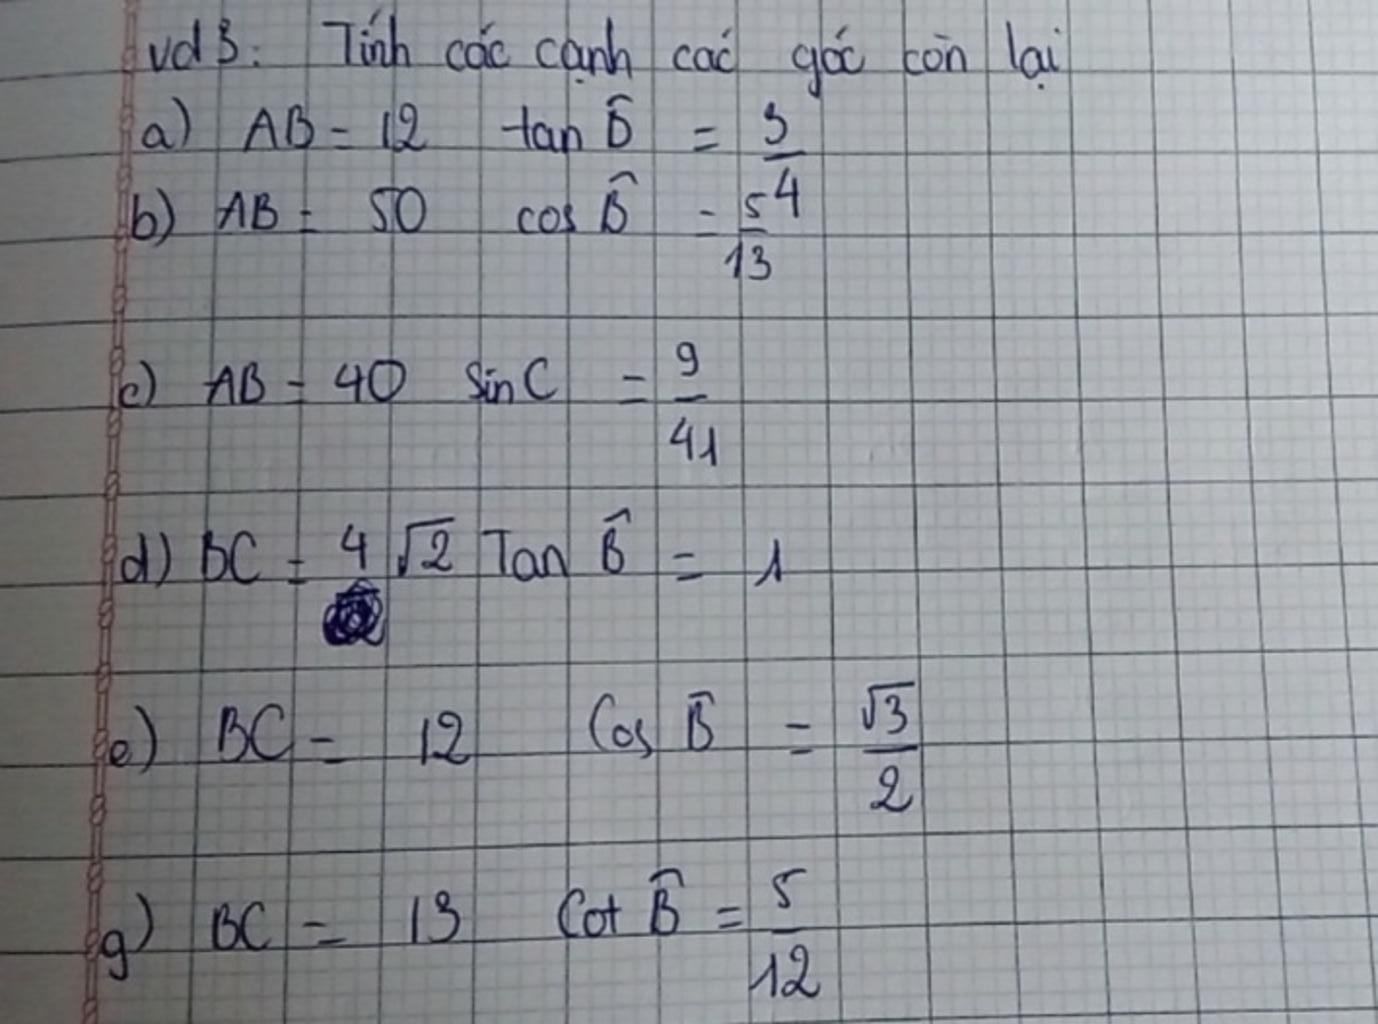 vd3: Tính các cạnh các góc còn lại
a) AB = 12 tan B̂ = 3/4
b) AB = 50 cos B̂ = 5/13
c) AB = 40 sin C = 9/41
d) BC = 4√2 Tan B̂ = 1
e) BC = 12 Cos B̂ = √3/2
g) BC = 13 Cot B̂ = 5/12